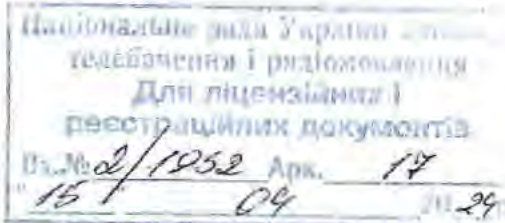 Національна рада України
телебачення і радіомовлення
Для ліцензійних і
реєстраційних документів
Вх.№ 2/1952 Арк. 17
"15 04 2024